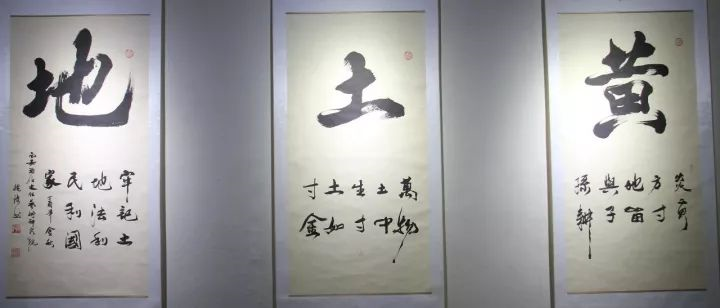 黄
炎
方寸
地留
與子
孫耕
土
萬物
土中
生寸
土如
寸金
地
牢記土
地法利
民利國
家 丁酉年金秋